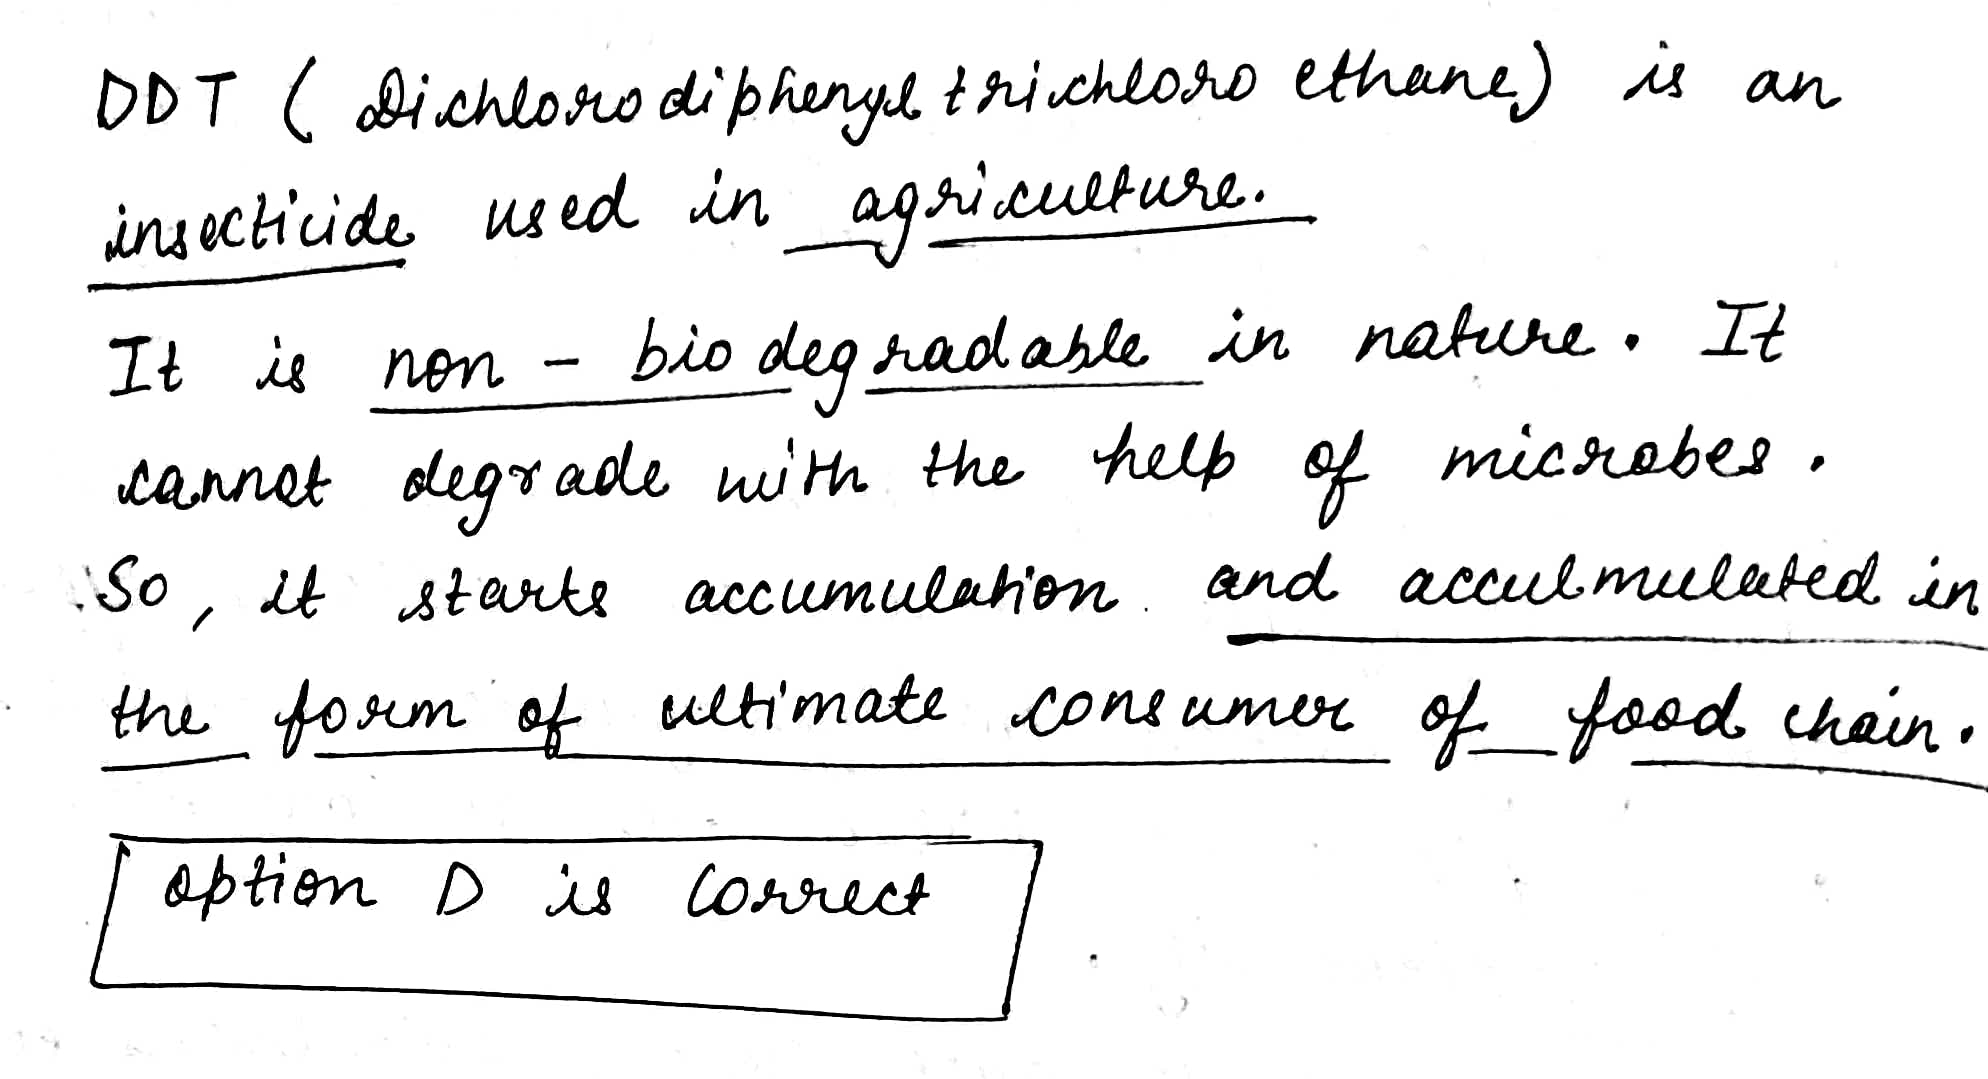 DDT ( Dichlorodiphenyl trichloro ethane) is an
insecticide used in agriculture.
It is non - biodegradable in nature. It
cannot degrade with the help of microbes.
So, it starts accumulation and acculmulated in
the form of ultimate consumer of food chain.
option D is Correct